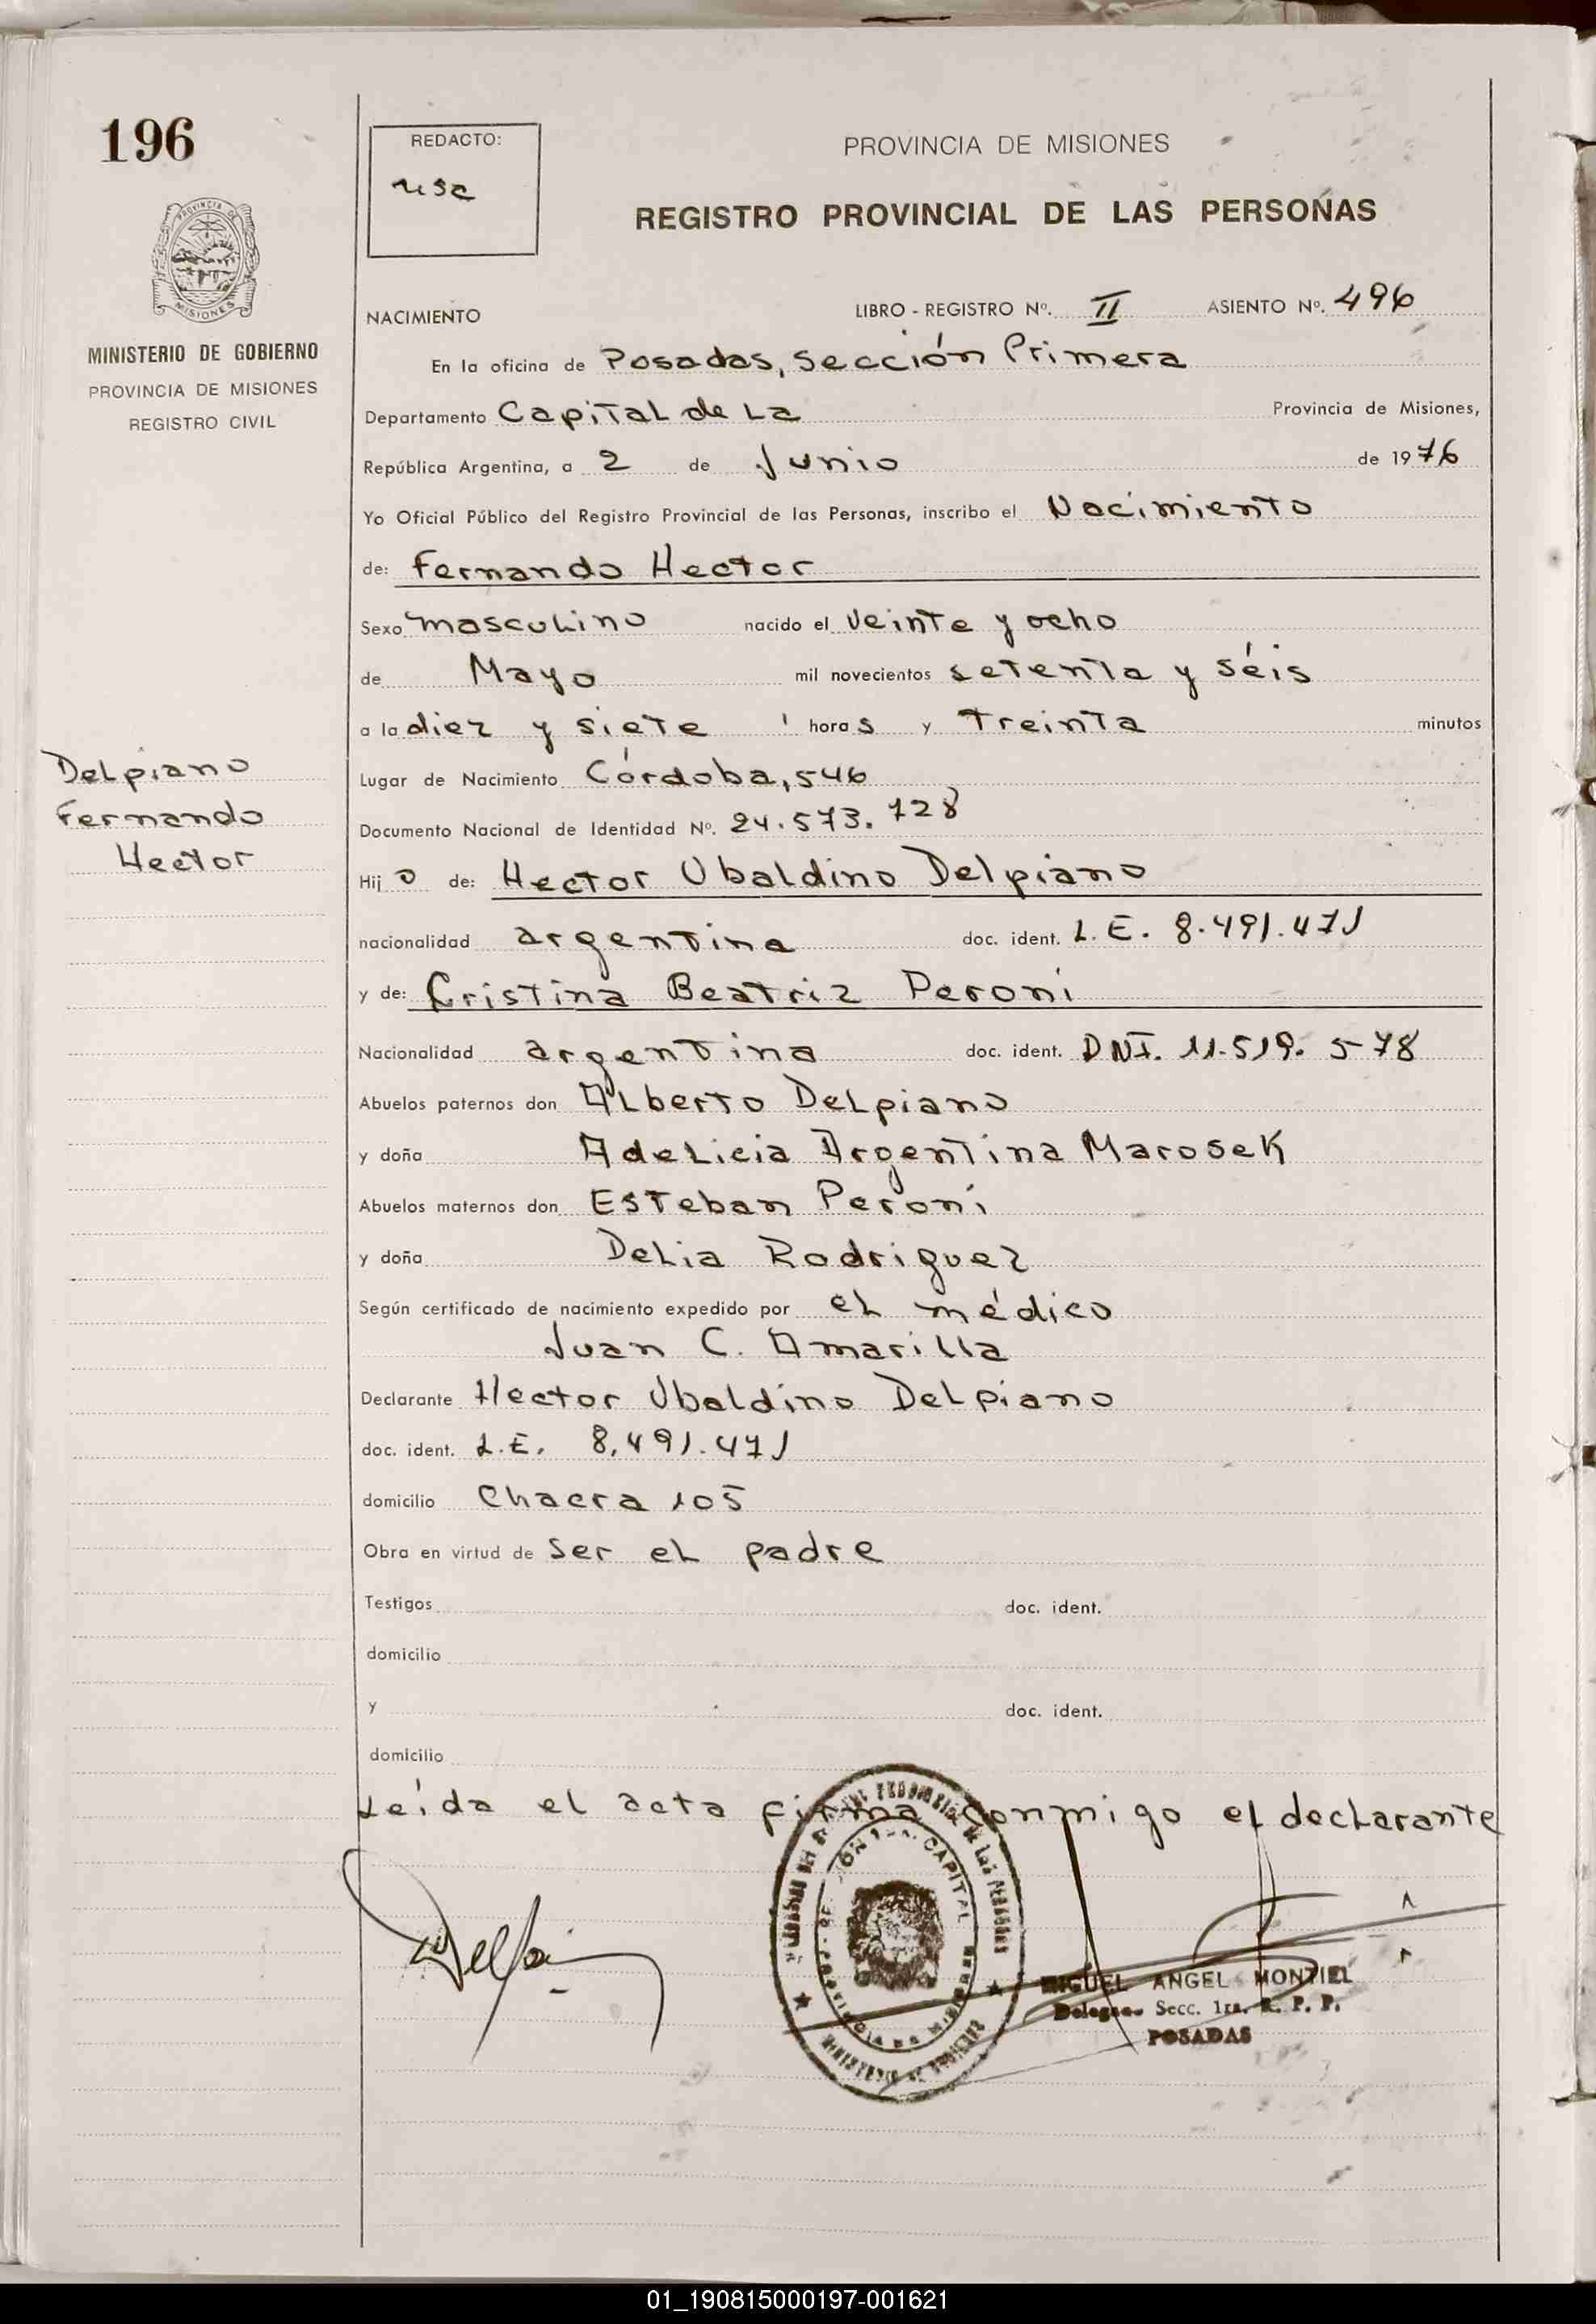 196
REDACTO:
PROVINCIA DE MISIONES
REGISTRO PROVINCIAL DE LAS PERSONAS
PROVINCIA DE
MISIONES
MINISTERIO DE GOBIERNO
PROVINCIA DE MISIONES
REGISTRO CIVIL
NACIMIENTO LIBRO - REGISTRO Nº. II ASIENTO Nº. 496
En la oficina de Posadas, Sección Primera
Departamento Capital de La Provincia de Misiones,
República Argentina, a 2 de Junio de 1976
Yo Oficial Público del Registro Provincial de las Personas, inscribo el Nacimiento
de: Fernando Hector
Sexo masculino nacido el veinte y ocho
de Mayo mil novecientos setenta y séis
a la diez y siete horas y treinta minutos
Delpiano
Fernando
Hector
Lugar de Nacimiento Córdoba, 546
Documento Nacional de Identidad Nº. 24.573.728
Hijo de: Hector Ubaldino Delpiano
nacionalidad argentina doc. ident. L.E. 8.491.471
y de: Cristina Beatriz Peroni
Nacionalidad argentina doc. ident. DNI. 11.519.578
Abuelos paternos don Alberto Delpiano
y doña Adelicia Argentina Marosek
Abuelos maternos don Esteban Peroni
y doña Delia Rodriguez
Según certificado de nacimiento expedido por el médico
Juan C. Amarilla
Declarante Hector Ubaldino Delpiano
doc. ident. L.E. 8.491.471
domicilio Chacra 105
Obra en virtud de ser el padre
Testigos doc. ident.
domicilio
y doc. ident.
domicilio
Leída el acta firma conmigo el declarante
CAPITAL
MIGUEL ANGEL MONTIEL
Secc. 1ra. R. P. P.
POSADAS
01_190815000197-001621